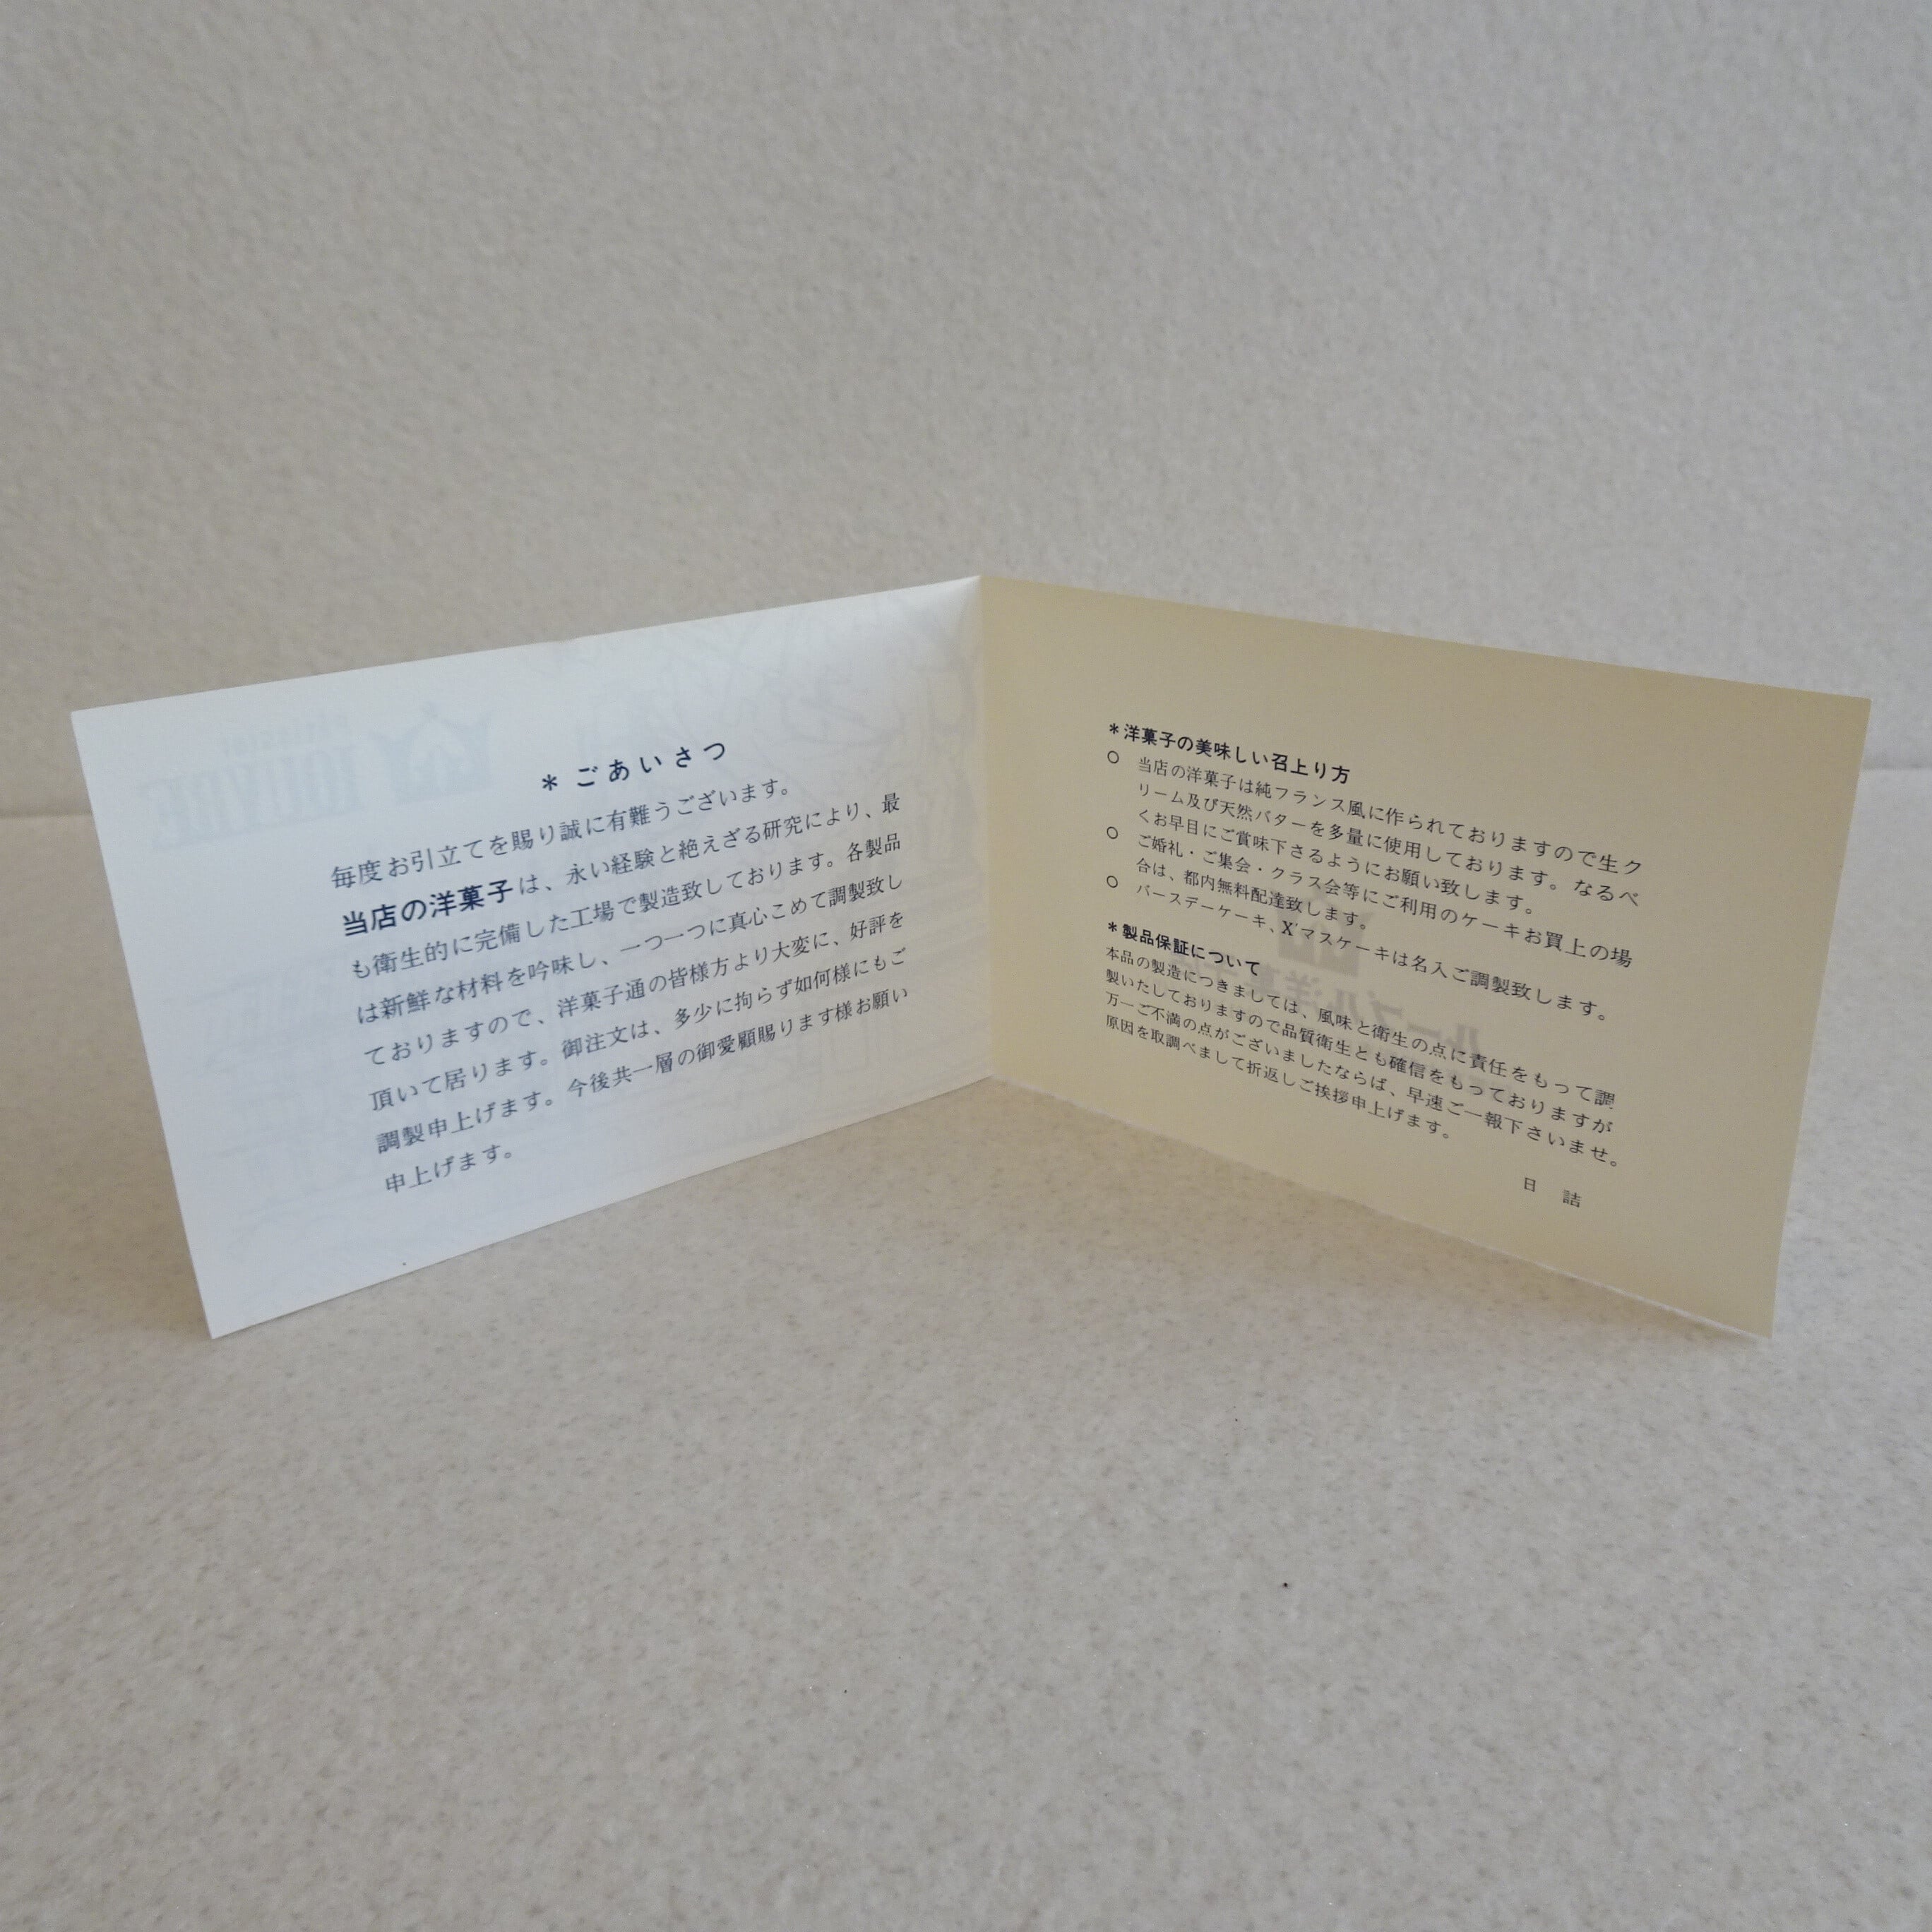 ＊ごあいさつ
毎度お引立てを賜り誠に有難うございます。
当店の洋菓子は、永い経験と絶えざる研究により、最
も衛生的に完備した工場で製造致しております。各製品
は新鮮な材料を吟味し、一つ一つに真心こめて調製致し
ておりますので、洋菓子通の皆様方より大変に、好評を
頂いて居ります。御注文は、多少に拘らず如何様にもご
調製申上げます。今後共一層の御愛顧賜ります様お願い
申上げます。
＊洋菓子の美味しい召上り方
○ 当店の洋菓子は純フランス風に作られておりますので生ク
リーム及び天然バターを多量に使用しております。なるべ
くお早目にご賞味下さるようにお願い致します。
○ ご婚礼・ご集会・クラス会等にご利用のケーキお買上の場
合は、都内無料配達致します。
○ バースデーケーキ、X'マスケーキは名入ご調製致します。
＊製品保証について
本品の製造につきましては、風味と衛生の点に責任をもって調
製いたしておりますので品質衛生とも確信をもっておりますが
万一ご不満の点がございましたならば、早速ご一報下さいませ。
原因を取調べまして折返しご挨拶申上げます。
日 詰